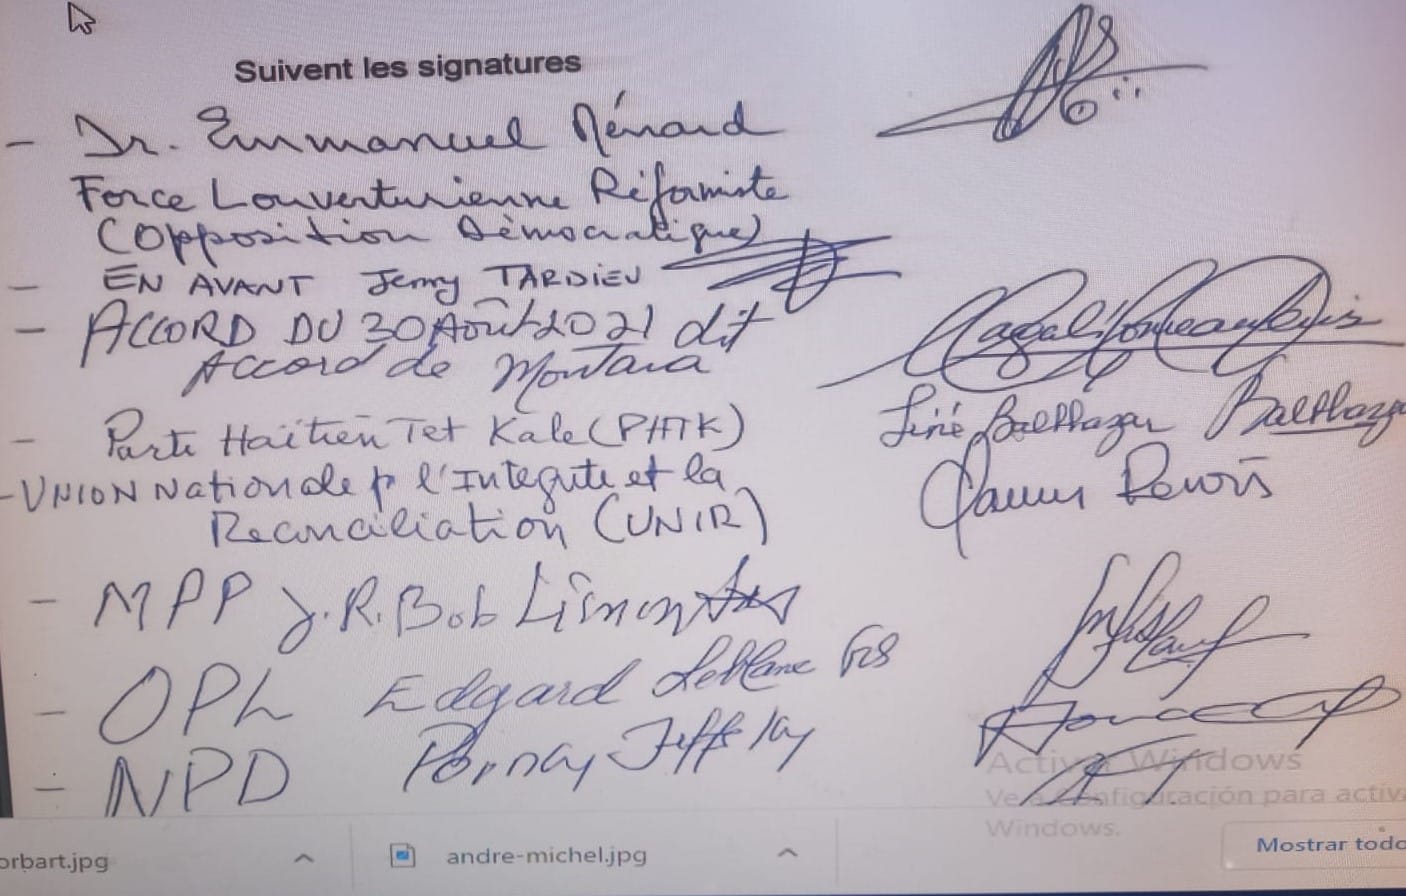 Suivent les signatures
- Dr. Emmanuel Ménard
Force Louverturienne Réformiste
(Opposition Démocratique)
- EN AVANT Jerry TARDIEU
- ACCORD DU 30 Août 2021 dit
Accord de Montana
- Parti Haïtien Tet Kale (PHTK) Liné Balthazar Balthazar
- UNION Nationale p l'Integrite et la
Reconciliation (UNIR)
- MPP J.R. Bob
- OPL Edgard Leblanc Fils
- NPD
Activar Windows
Ve a Configuración para activar
Windows.
orbart.jpg
andre-michel.jpg
Mostrar todo